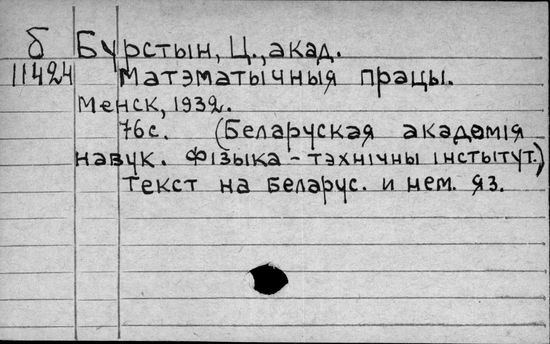 б Бурстын, Ц., акад.
11424 Матэматычныя працы.
Менск, 1932.
76с. (Беларуская акадэмія
навук. Фізыка-тэхнічны інстытут.)
Текст на беларус. и нем. яз.